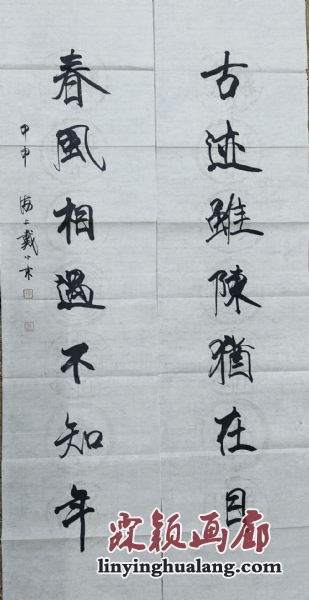 古迹雖陳猶在目
春風相遇不知年
甲申 海上戴小京
琛颖画廊
linyinghualang.com